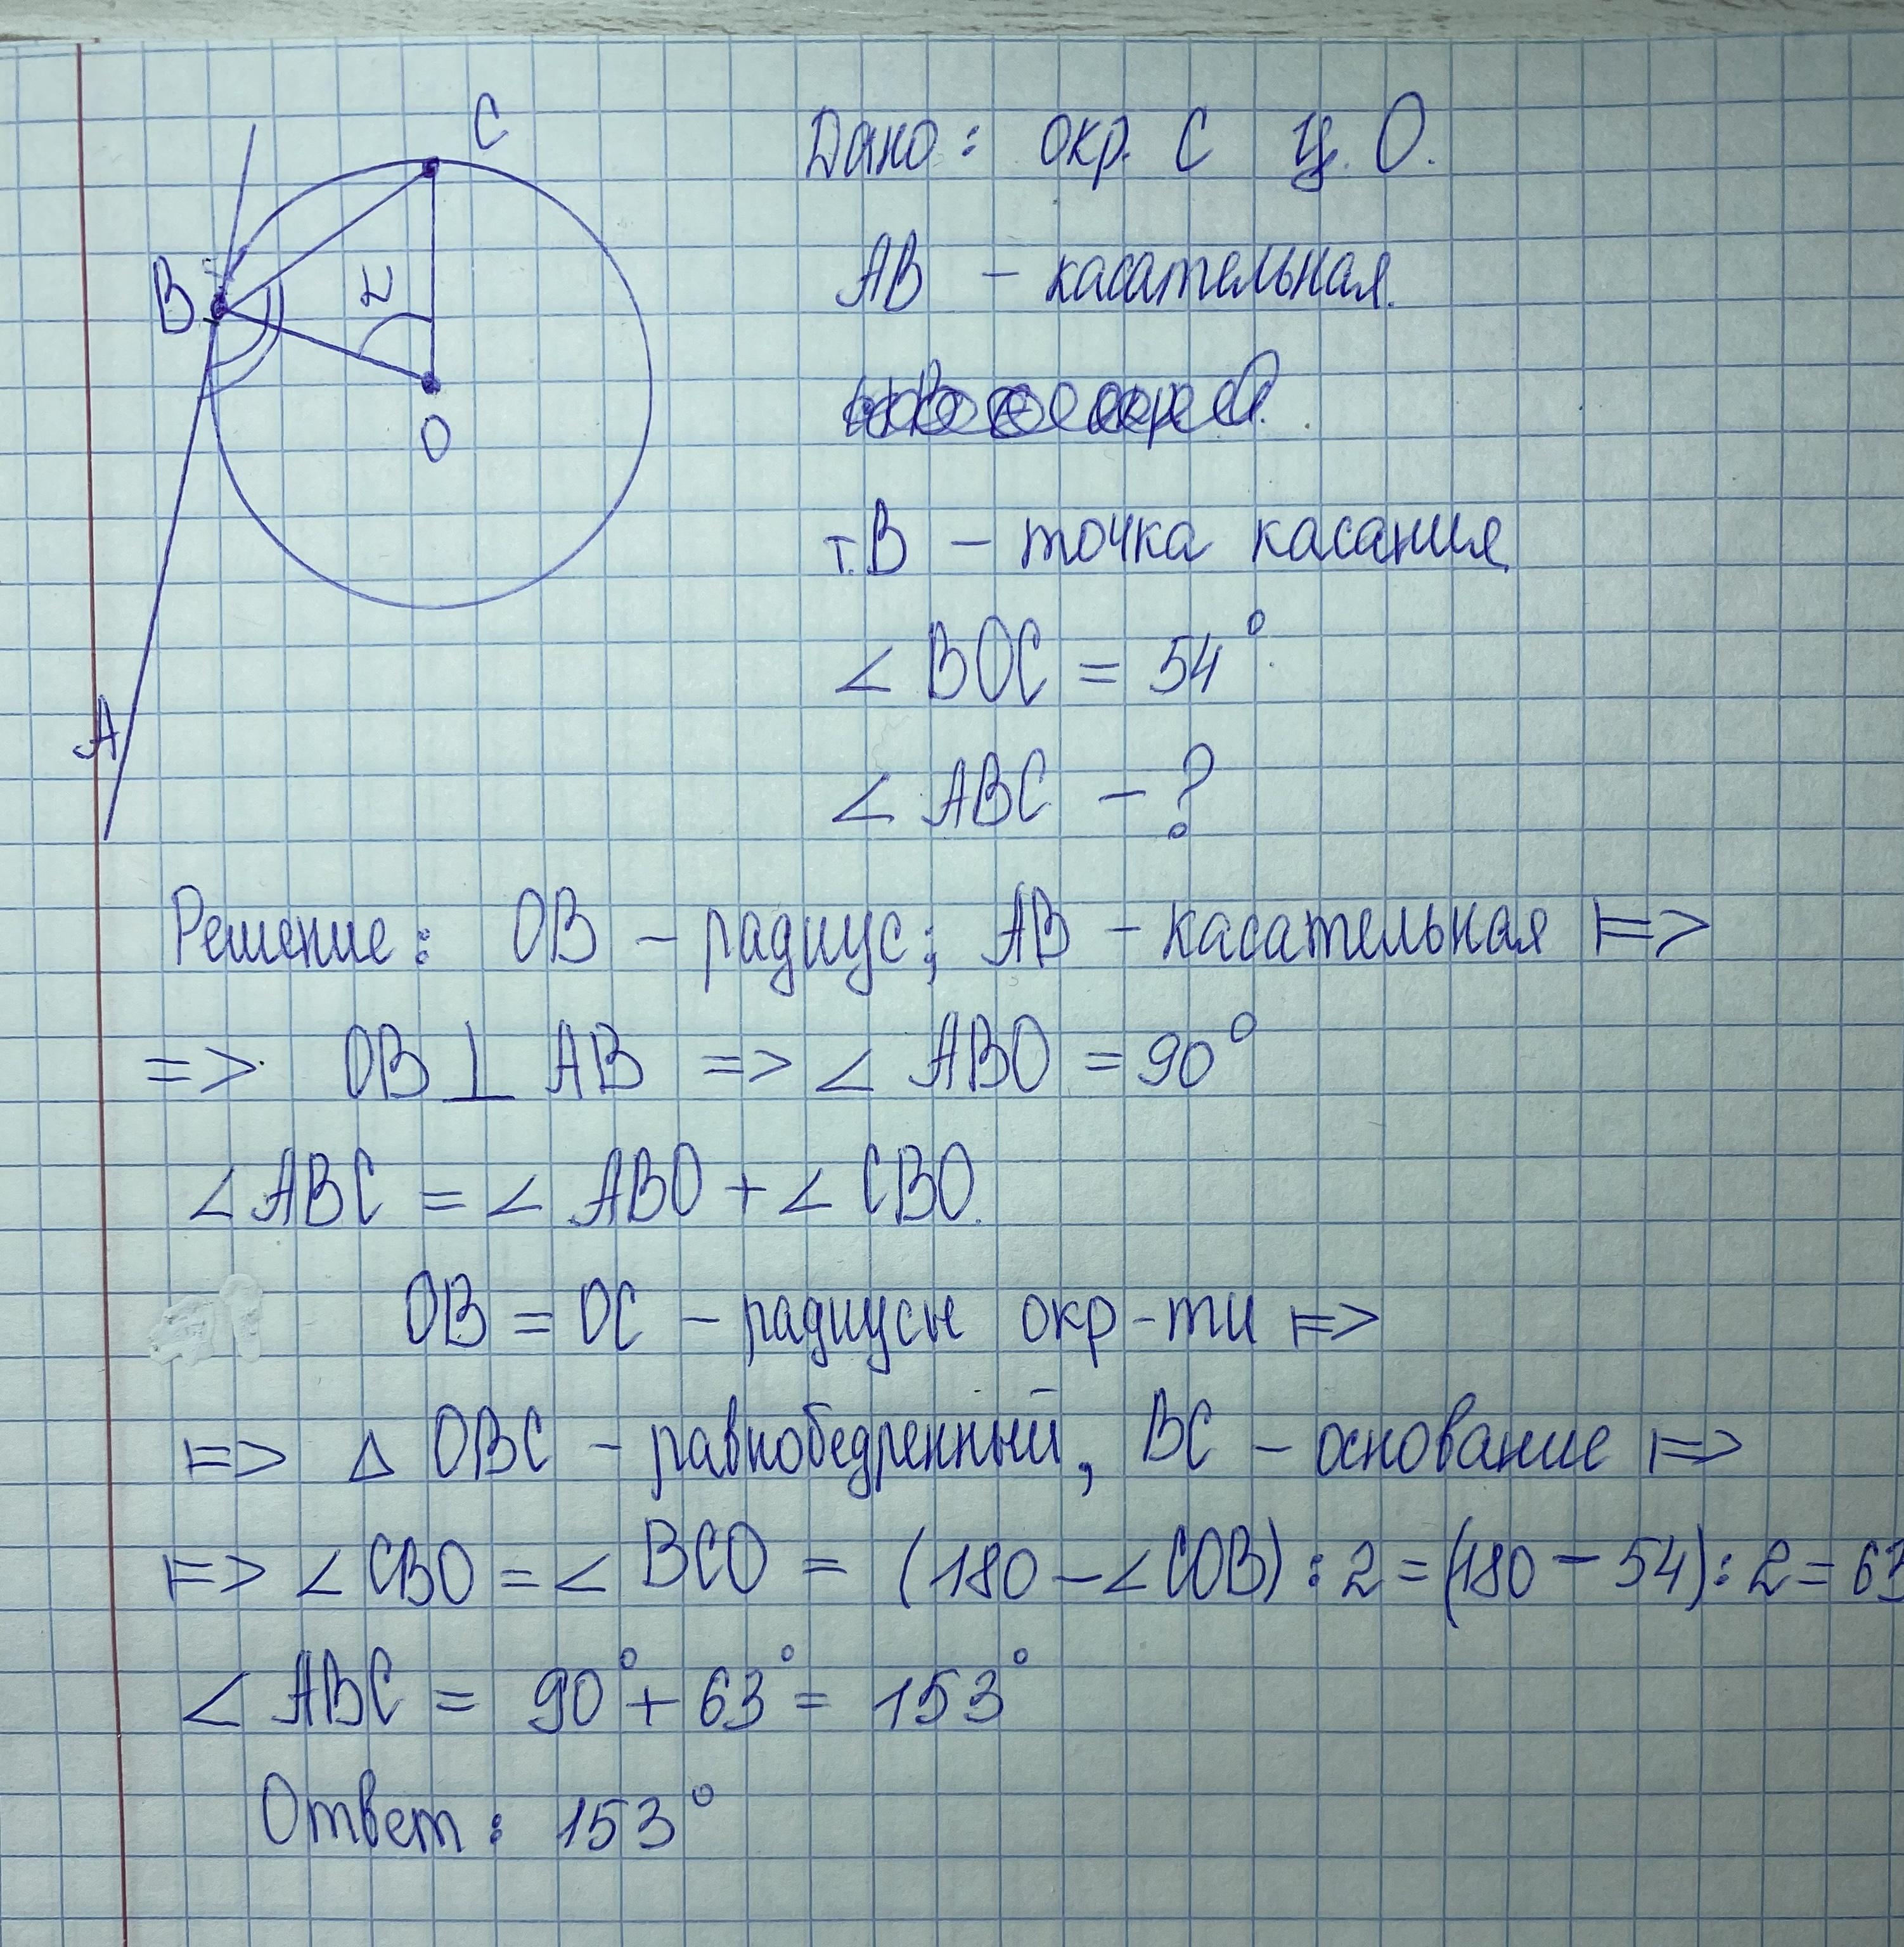 C
B
α
O
A
Дано: окр. с ц. О.
AB – касательная.
т.B – точка касания
∠ BOC = 54°.
∠ ABC – ?
Решение: OB – радиус; AB – касательная |=>
=> OB ⊥ AB => ∠ ABO = 90°
∠ ABC = ∠ ABO + ∠ CBO.
OB = OC – радиусы окр-ти |=>
|=> Δ OBC – равнобедренный, BC – основание |=>
|=> ∠ CBO = ∠ BCO = (180 – ∠COB) : 2 = (180 – 54) : 2 = 63
∠ ABC = 90° + 63° = 153°
Ответ: 153°